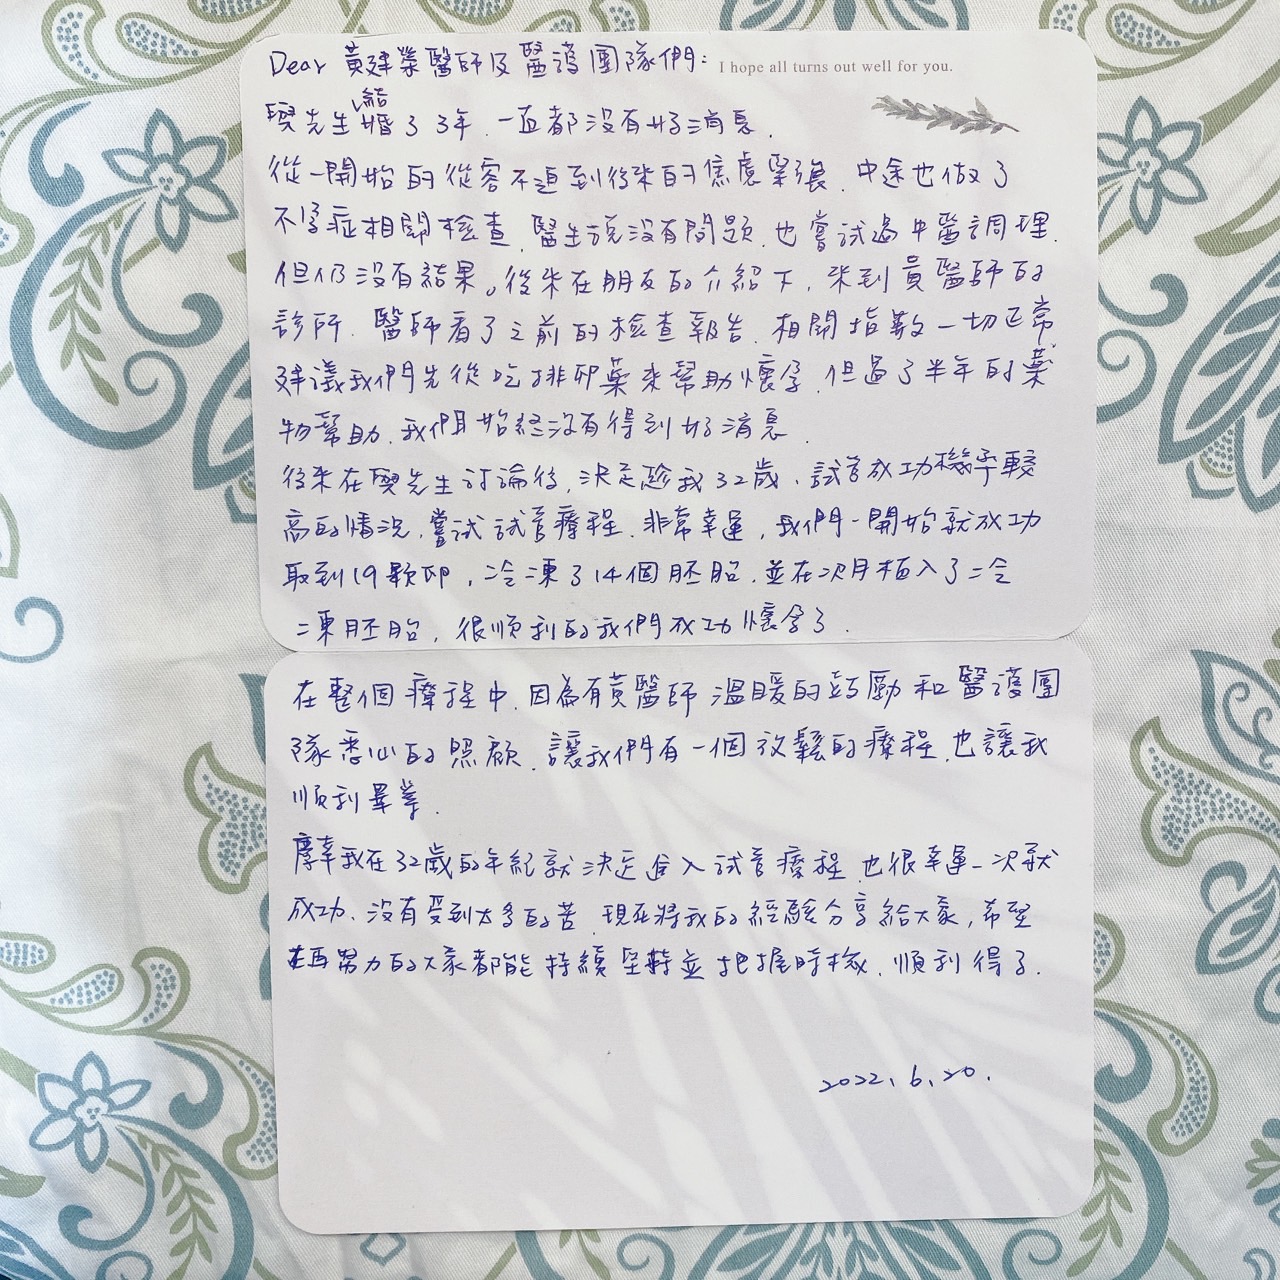 Dear 黃建榮醫師及醫護團隊們:
I hope all turns out well for you.
與先生結婚了3年,一直都沒有好消息.
從一開始的從容不迫到後來的焦慮緊張,中途也做了
不孕症相關檢查,醫生說沒有問題,也嘗試過中醫調理,
但仍沒有結果。後來在朋友的介紹下,來到黃醫師的
診所,醫師看了之前的檢查報告,相關指數一切正常
建議我們先從吃排卵藥來幫助懷孕,但過了半年的藥
物幫助,我們始終沒有得到好消息.
後來在與先生討論後,決定趁我32歲,試管成功機率較
高的情況,嘗試試管療程,非常幸運,我們一開始就成功
取到19顆卵,冷凍了14個胚胎,並在次月植入了二冷
凍胚胎,很順利的我們成功懷孕了.
在整個療程中,因為有黃醫師溫暖的鼓勵和醫護團
隊悉心的照顧,讓我們有一個放鬆的療程,也讓我
順利畢業.
慶幸我在32歲的年紀就決定進入試管療程,也很幸運一次就
成功,沒有受到太多的苦,現在將我的經驗分享給大家,希望
在再努力的大家都能持續堅持並把握時機,順利得了.
2022.6.20.